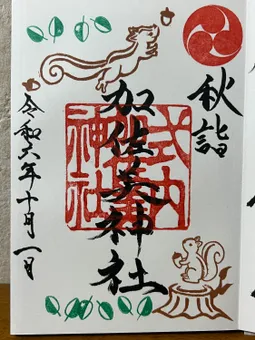 秋詣
加佐美神社
令和六年十月一日
式内
神社